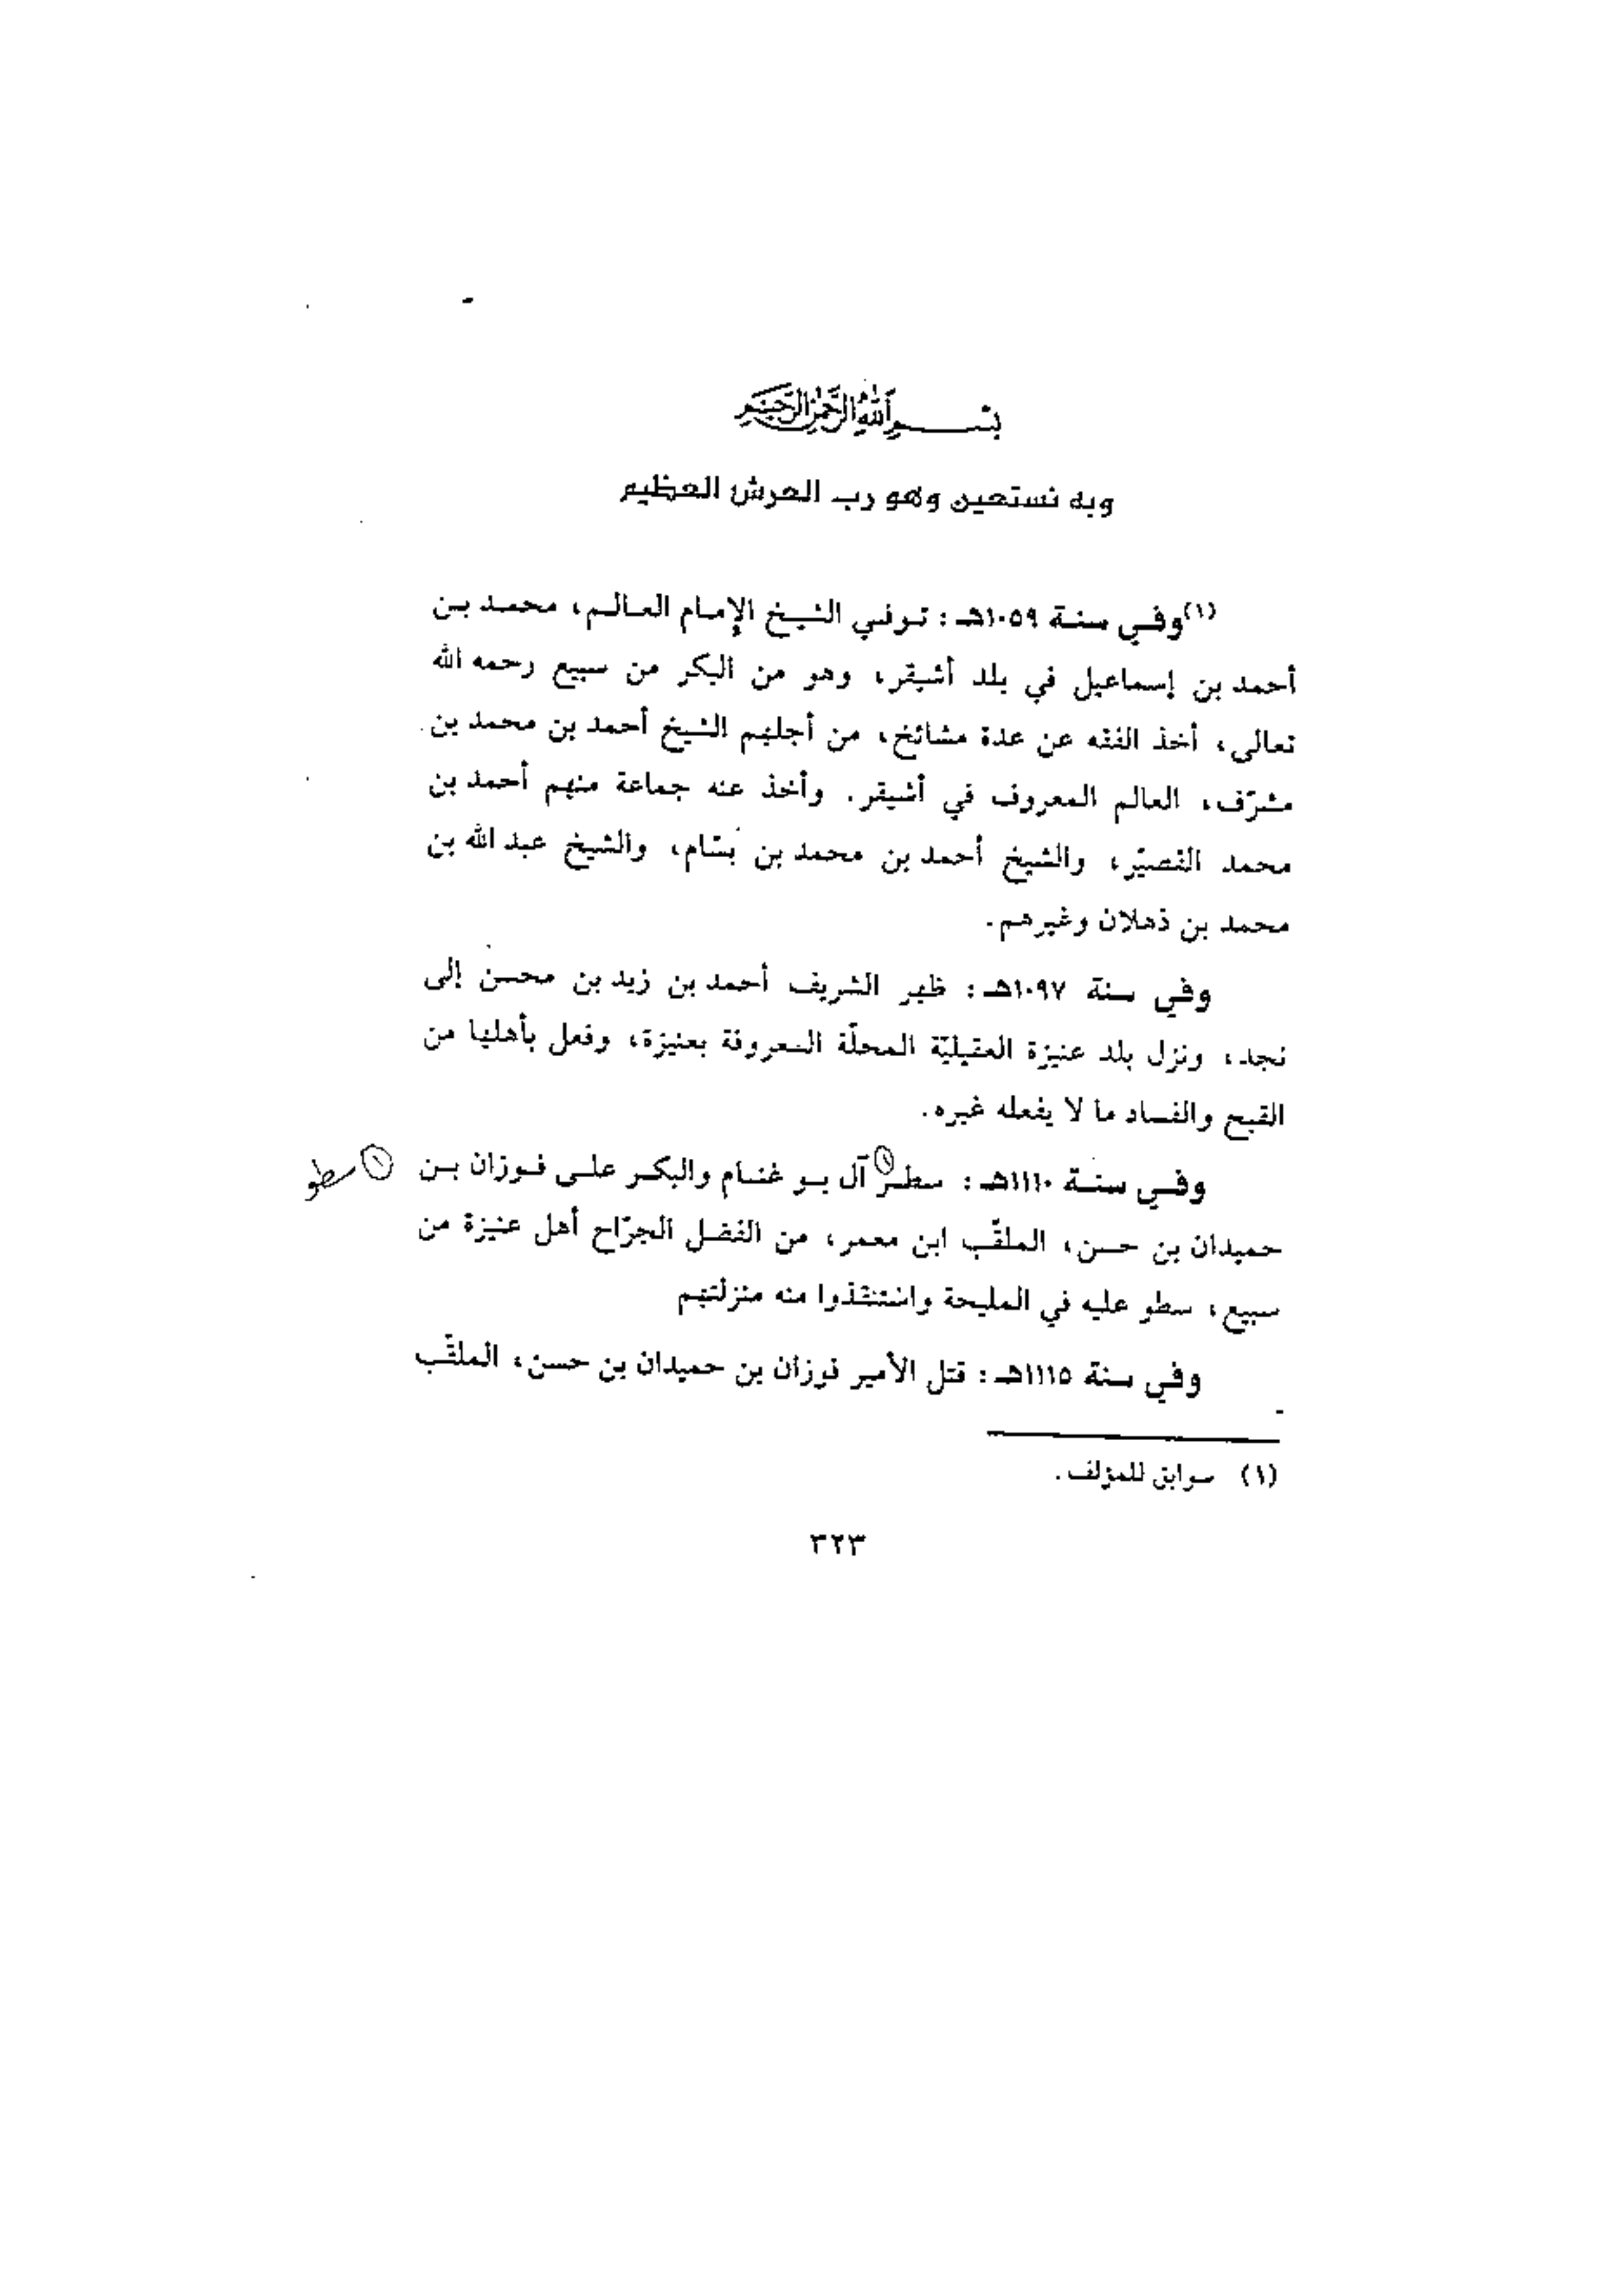 بسم الله الرحمن الرحيم
وبه نستعين وهو رب العرش العظيم
(١)وفي سنة ١٠٥٩هـ: توفي الشيخ الإمام العالم، محمد بن
أحمد بن إسماعيل في بلد أشيقر، وهو من البكر من سبيع رحمه الله
تعالى، أخذ الفقه عن عدة مشائخ، من أجلهم الشيخ أحمد بن محمد بن
مشرّف، العالم المعروف في أشيقر. وأخذ عنه جماعة منهم أحمد بن
محمد القصيّر، والشيخ أحمد بن محمد بن بسّام، والشيخ عبد الله بن
محمد بن ذهلان وغيرهم.
وفي سنة ١٠٩٧هـ: ظهر الشريف أحمد بن زيد بن محسن إلى
نجد، ونزل بلد عنيزة العقيليّة المحلّة المعروفة بعنيزة، وفعل بأهلها من
القبح والفساد ما لا يفعله غيره.
وفي سنة ١١١٠هـ: سطر (١) آل بو غنام والبكر على فوزان بن (١) سطو
حميدان بن حسن، الملقّب ابن معمر، من الفضل الجرّاح أهل عنيزة من
سبيع، سطو عليه في المليحة واستنقذوا منه منزلتهم
وفي سنة ١١١٥هـ: قتل الأمير فوزان بن حميدان بن حسن، الملقّب
(١) سوابق للمؤلف.
٣٢٣